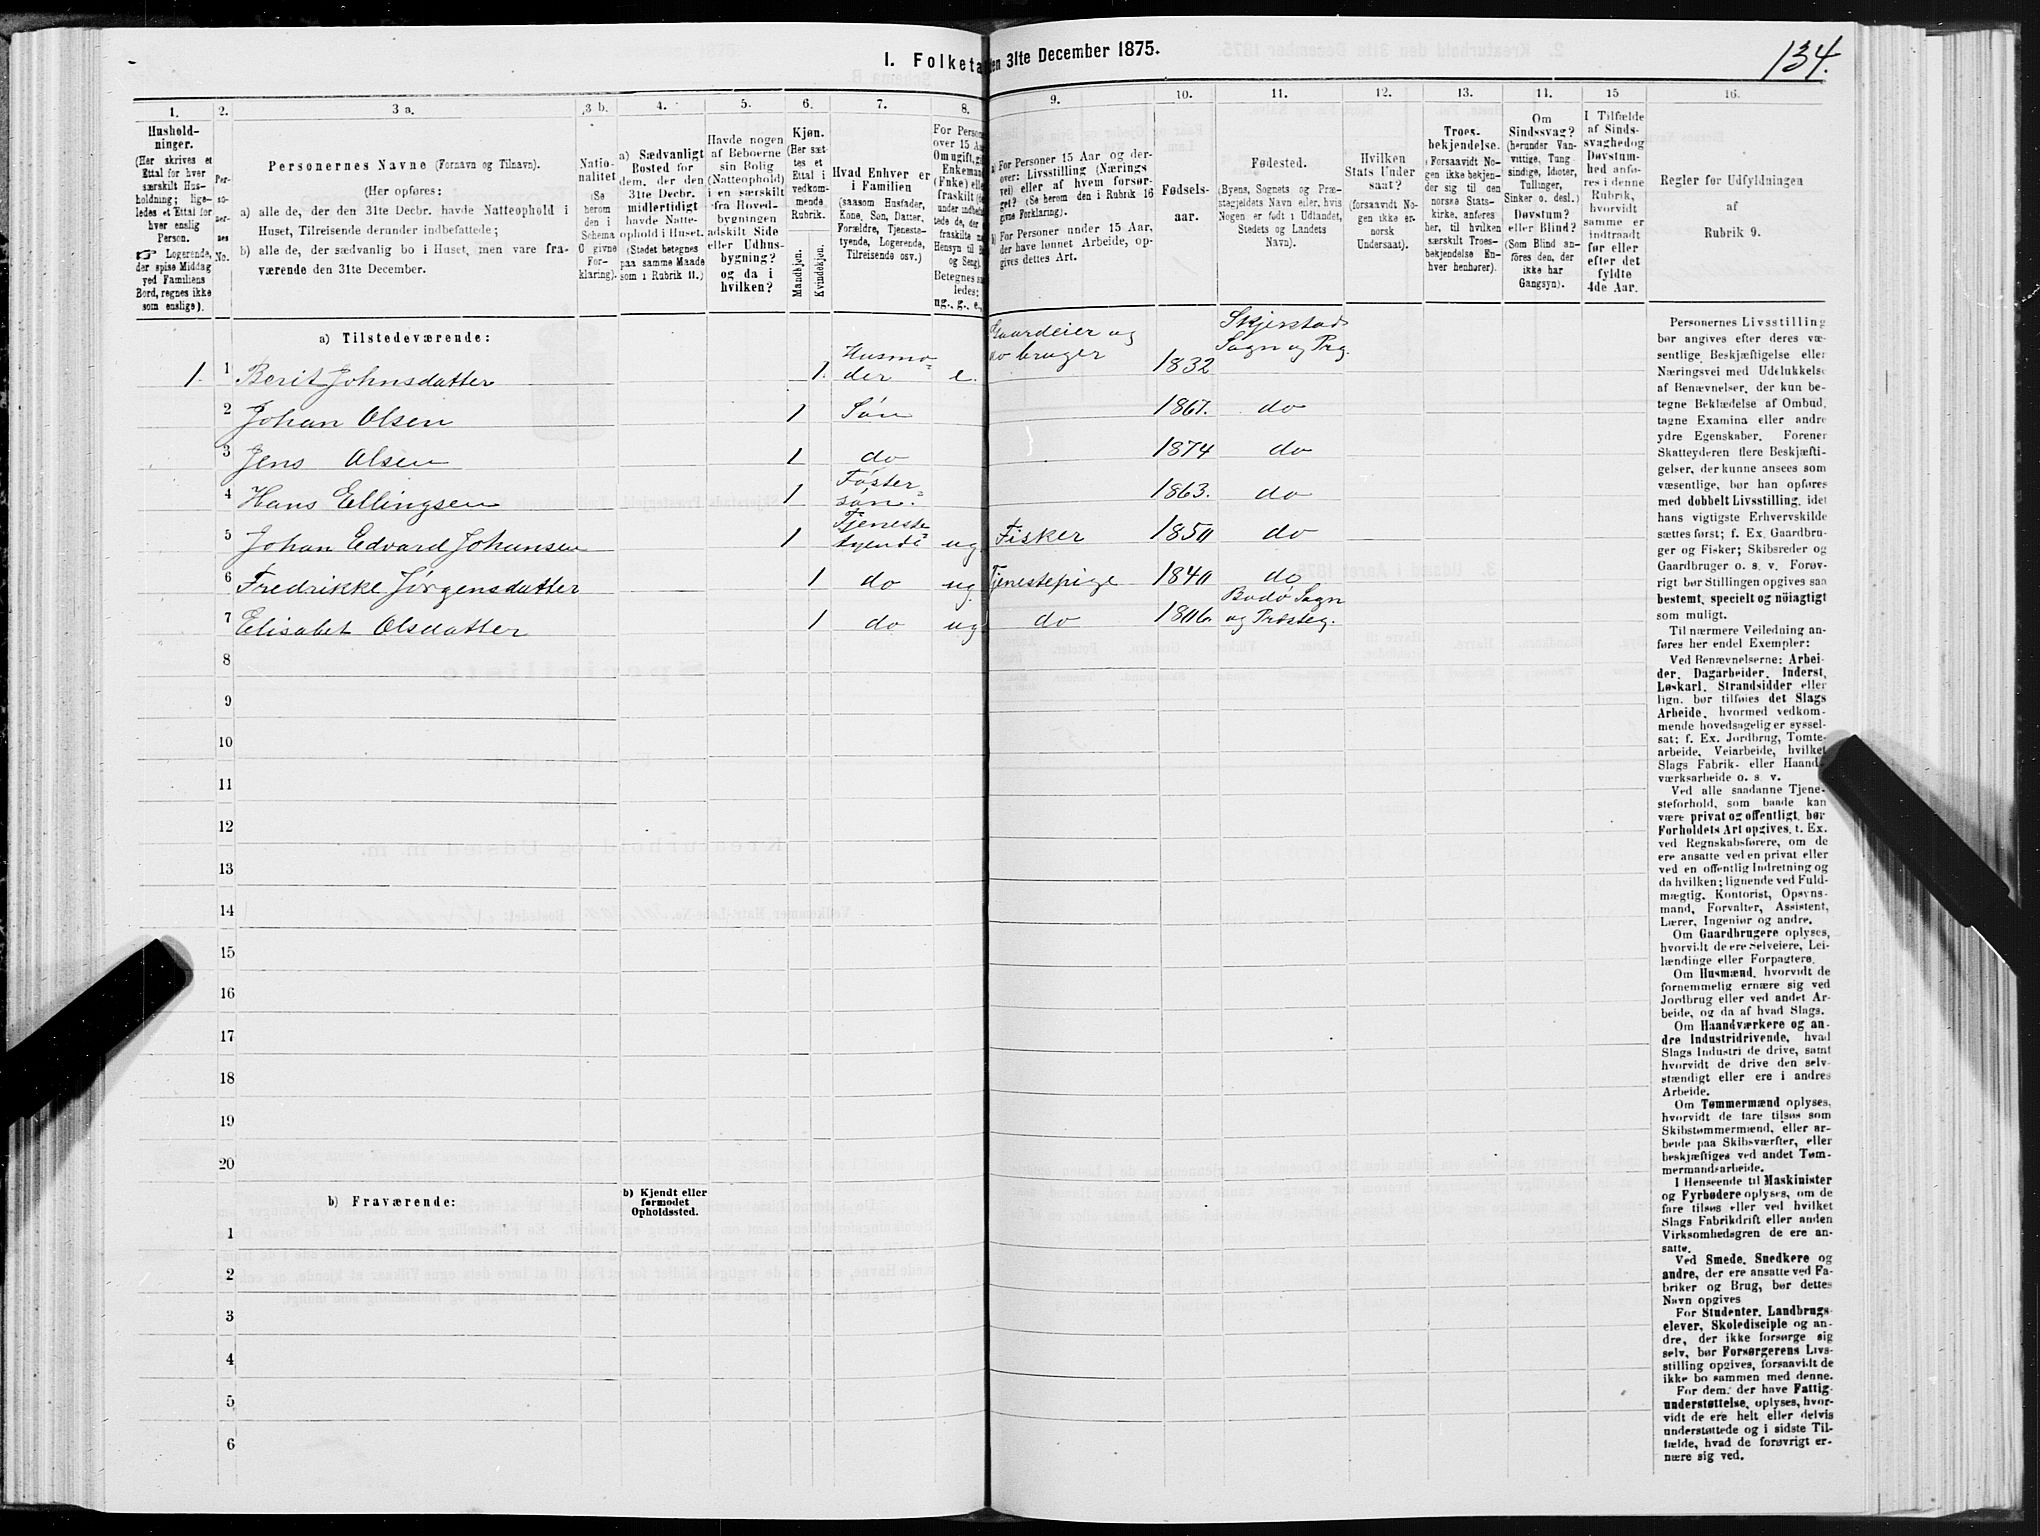 134.
1. Folketæ
en 31te December 1875.
1.
2.
3 a.
3 b.
4.
5.
6.
7.
8.
9.
10.
11.
12.
13.
14.
15
16.
Hushold-
ninger.
(Her skrives et
Ettal for hver
særskilt Hus-
holdning; lige-
ledes et Ettal for
hver enslig
Person.
☞ Logerende,
der spise Middag
ved Familiens
Bord, regnes ikke
som enslige).
Per-
so-
ner-
nes
No.
Personernes Navne (Fornavn og Tilnavn).
(Her opføres:
a) alle de, der den 31te Decbr. havde Natteophold i
Huset, Tilreisende derunder indbefattede;
b) alle de, der sædvanlig bo i Huset, men vare fra-
værende den 31te December.
Natio-
nalitet
(Se
herom
den i
Schema
O givne
For-
klaring).
a) Sædvanligt
Bosted for
dem, der den
31te Decbr.
midlertidigt
havde Natte-
ophold i Huset.
(Stedet betegnes
paa samme Maade
som i Rubrik 11.)
Havde nogen
af Beboerne
sin Bolig
(Natteophold)
i en særskilt
fra Hoved-
bygningen
adskilt Side
eller Udhus-
bygning?
og da i
hvilken?
Kjøn.
(Her sæt-
tes et
Ettal i
vedkom-
mende
Rubrik.
Mandkjøn.
Kvindekjøn.
Hvad Enhver er
i Familien
(saasom Husfader,
Kone, Søn, Datter,
Forældre, Tjeneste-
tyende, Logerende,
Tilreisende osv.)
For Person
over 15 Aa
Om ugift, gi
Enkeman
(Enke) elle
fraskilt
under indbe
tede de, der
fraskilte
Hensyn til B
og Seng).
Betegnes s
ledes:
ug., g., e.,
a) For Personer 15 Aar og der-
over: Livsstilling (Nærings
vei) eller af hvem forsør-
get? (Se herom den i Rubrik 16
givne Forklaring).
b) For Personer under 15 Aar,
der have lønnet Arbeide, op-
gives dettes Art.
Fødsels-
aar.
Fødested.
(Byens, Sognets og Præ-
stegjeldets Navn eller, hvis
Nogen er født i Udlandet,
Stedets og Landets
Navn).
Hvilken
Stats Under
saat?
(forsaavidt No-
gen ikke er
norsk
Undersaat).
Troes-
bekjendelse.
(Forsaavidt No-
gen ikke bekjen-
der sig til den
norske Stats-
kirke, anføres
her, til hvilken
særskilt Troes-
bekjendelse En-
hver henhører).
Om
Sindssvag?
(herunder Van-
vittige, Tung
sindige, Idioter,
Tullinger,
Sinker o. desl.)
Døvstum?
eller Blind?
(Som Blind an-
føres den, der
ikke har
Gangsyn).
I Tilfælde
af Sinds-
svaghed og
Døvstum-
hed anfø-
res i denne
Rubrik,
hvorvidt
samme er
indtraadt
før eller
efter det
fyldte
4de Aar.
Regler før Udfyldningen
af
Rubrik 9.
a) Tilstedeværende:
1. 1 Berit Johnsdatter 1. Husmo-
der e. Gaardeier og
bruger 1832 Skjerstads
Sogn og Prg.
2 Johan Olsen 1 Søn 1867. do
3 Jens Olsen 1 do 1874 do
4 Hans Ellingsen 1 Foster-
søn. 1863. do
5 Johan Edvard Johansen 1 Tjeneste
tyende ug. Fisker 1850 do
6 Fredrikke Jørgensdatter 1 do ug. Tjenestepige 1840 do
7 Elisabet Olsdatter 1 do ug do 1806. Bodø Sogn
og Præsteg.
8
9
10
11
12
13
14
15
16
17
18
19
20
b) Fraværende:
b) Kjendt eller
formodet
Opholdssted.
1
2
3
4
5
6
Personernes Livsstilling
bør angives efter deres væ-
sentlige Beskjæftigelse eller
Næringsvei med Udelukkelse
af Benævnelser, der kun be-
tegne Beklædelse af Ombud,
tagne Examina eller andre
ydre Egenskaber. Forener
Skatteyderen flere Beskjæfti-
gelser, der kunne ansees som
væsentlige, bør han opføres
med dobbelt Livsstilling, idet
hans vigtigste Erhvervskilde
sættes først; f. Ex. Gaardbru-
ger og Fisker; Skibsreder og
Gaardbruger o. s. v. Forøv-
rigt bør Stillingen opgives saa
bestemt, specielt og nöiagtigt
som muligt.
Til nærmere Veiledning an-
føres her endel Exempler:
Ved Benævnelserne: Arbei-
der, Dagarbeider, Inderst,
Løskarl, Strandsidder eller
lign. bør tilføies det Slags
Arbeide, hvormed vedkom-
mende hovedsagelig er syssel-
sat; f. Ex. Jordbrug, Tomte-
arbeide, Veiarbeide, hvilket
Slags Fabrik- eller Haand-
værksarbeide o. s. v.
Ved alle saadanne Tjene-
steforhold, som baade kan
være privat og offentligt, bør
Forholdets Art opgives, t. Ex.
ved Regnskabsførere, om de
ere ansatte ved en privat eller
ved en offentlig Indretning og
da hvilken; lignende ved Fuld-
mægtig, Kontorist, Opsyns-
mand, Forvalter, Assistent,
Lærer, Ingeniør og andre.
Om Gaardbrugere oplyses,
hvorvidt de ere Selveiere, Lei-
lændinge eller Forpagtere.
Om Husmænd, hvorvidt de
fornemmelig ernære sig ved
Jordbrug eller ved andet Ar-
beide, og da af hvad Slags.
Om Haandværkere og an-
dre Industridrivende, hvad
Slags Industri de drive, samt
hvorvidt de drive den selv-
stændigt eller ere i andres
Arbeide.
Om Tømmermænd oplyses,
hvorvidt de fare tilsøs som
Skibstømmermænd, eller ar-
beide paa Skibsværfter, eller
beskjæftiges ved andet Tøm-
mermandsarbeide.
I Henseende til Maskinister
og Fyrbødere oplyses, om de
fare tilsøs eller ved hvilket
Slags Fabrikdrift eller anden
Virksomhedsgren de ere an-
satte.
Ved Smede, Snedkere og
andre, der ere ansatte ved Fa-
briker og Brug, bør dettes
Navn opgives
For Studenter, Landbrugs-
elever, Skoledisciple og an-
dre, der ikke forsørge sig
selv, bør Forsørgerens Livs-
stilling opgives, forsaavidt de
ikke bo sammen med denne.
For dem, der have Fattig-
understøttelse, oplyses, hvor-
vidt de ere helt eller delvis
understøttede og i sidste Til-
fælde, hvad de forøvrigt er-
nære sig ved.